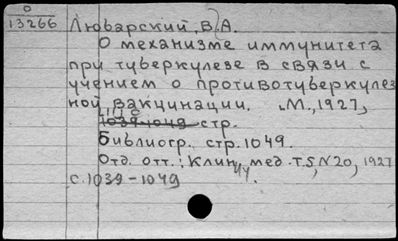 О
13266 Люварский, В. А.
О механизме иммунитета
при туберкулезе в связи с
учением о противотуберкулез
ной вакцинации. М., 1927,
1039-1049 стр.
Библиогр. стр. 1049.
Отд. отт.: Клин. мед. т. 5, N 20, 1927
с. 1039-1049